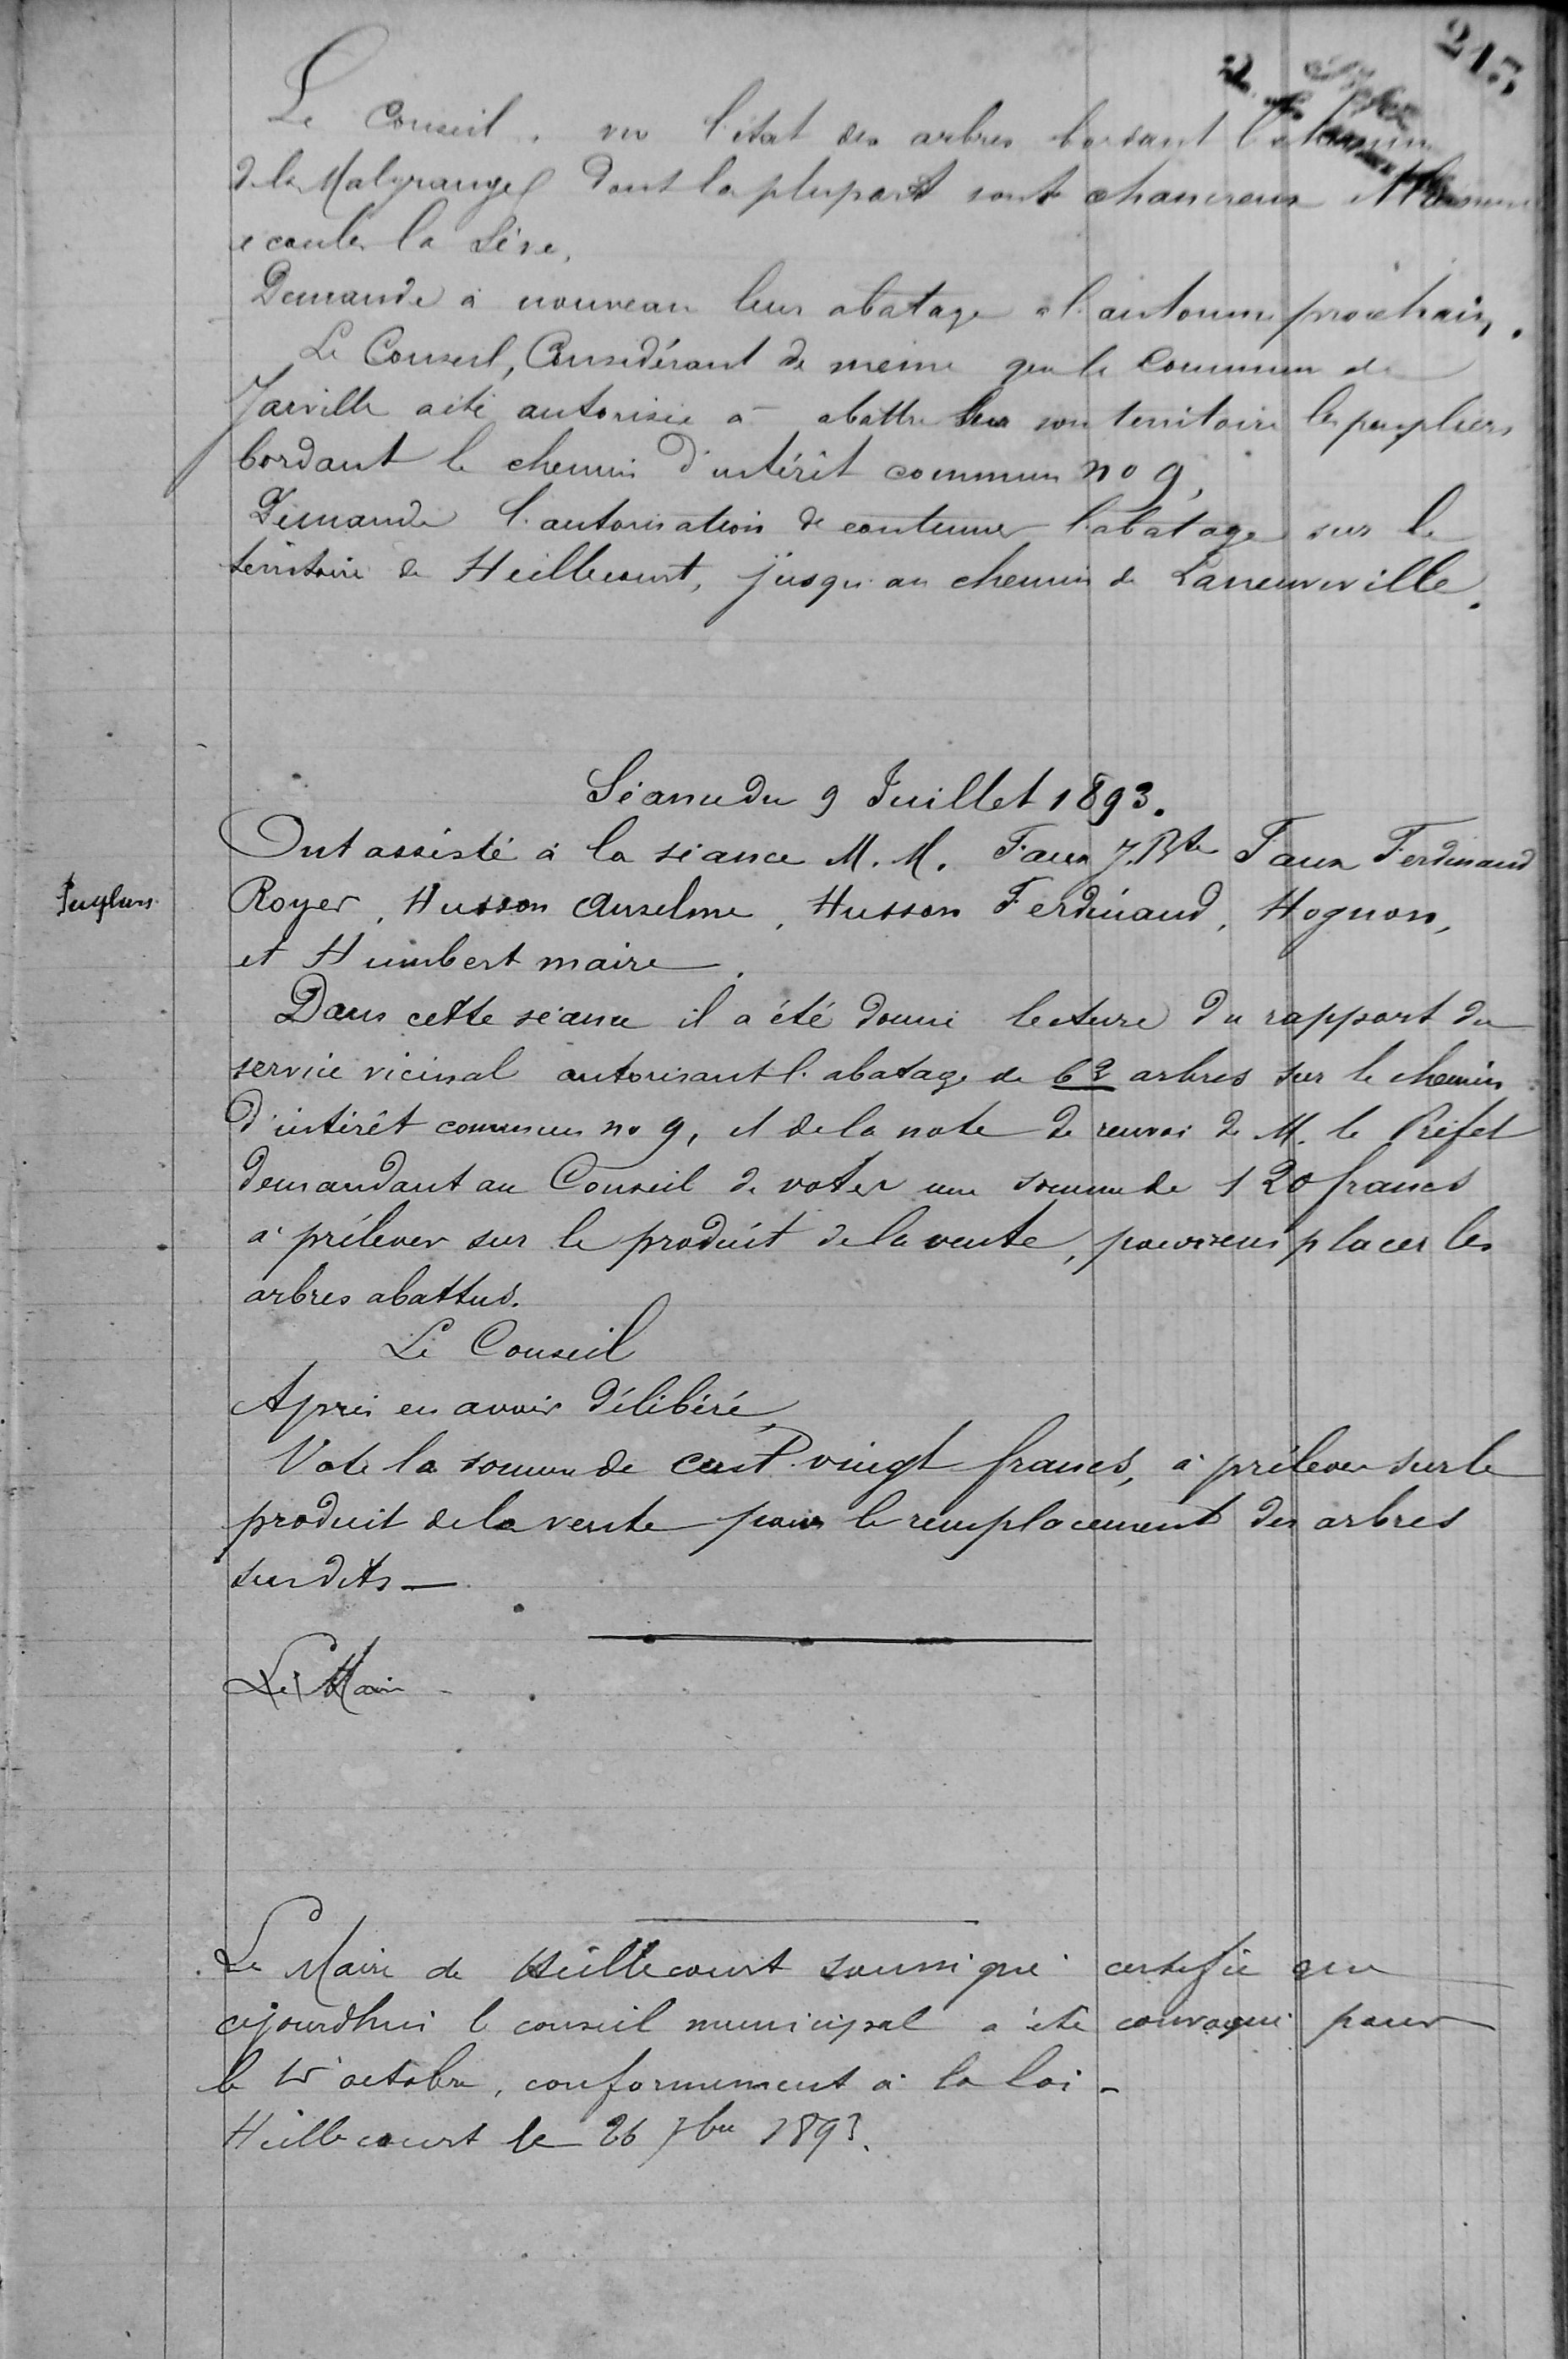 213
Le Conseil, vu l'état des arbres bordant le chemin
de la Malgrange dont la plupart sont chancreux et laissent
écouler la sève,
Demande à nouveau leur abatage à l'automne prochain.
Le Conseil, Considérant de meme que la Commune de
Jarville a été autorisée à abattre sur son territoire les peupliers
bordant le chemin d'intérêt commun no 9,
Demande l'autorisation de continuer l'abatage sur le
territoire de Heillecourt, jusqu'au chemin de Laneuveville.
Séance du 9 Juillet 1893.
Ont assisté à la séance M. M. Faux J. Bte Faux Ferdinand
Royer, Husson Anselme, Husson Ferdinand, Hognon,
et Humbert maire.
Dans cette séance il a été donné lecture du rapport du
service vicinal autorisant l'abatage de 62 arbres sur le chemin
d'intérêt commun no 9, et de la note de renvoi de M. le Préfet
demandant au Conseil de voter une somme de 120 francs
à prélever sur le produit de la vente, pour remplacer les
arbres abattus.
Le Conseil
Après en avoir délibéré,
Vote la somme de cent vingt francs, à prélever sur le
produit de la vente pour le remplacement des arbres
susdits —
Le Maire
Le Maire de Heillecourt soussigné certifie que
cejourdhui le conseil municipal a été convoqué pour
le octobre, conformément à la loi -
Heillecourt le 26 7bre 1893.